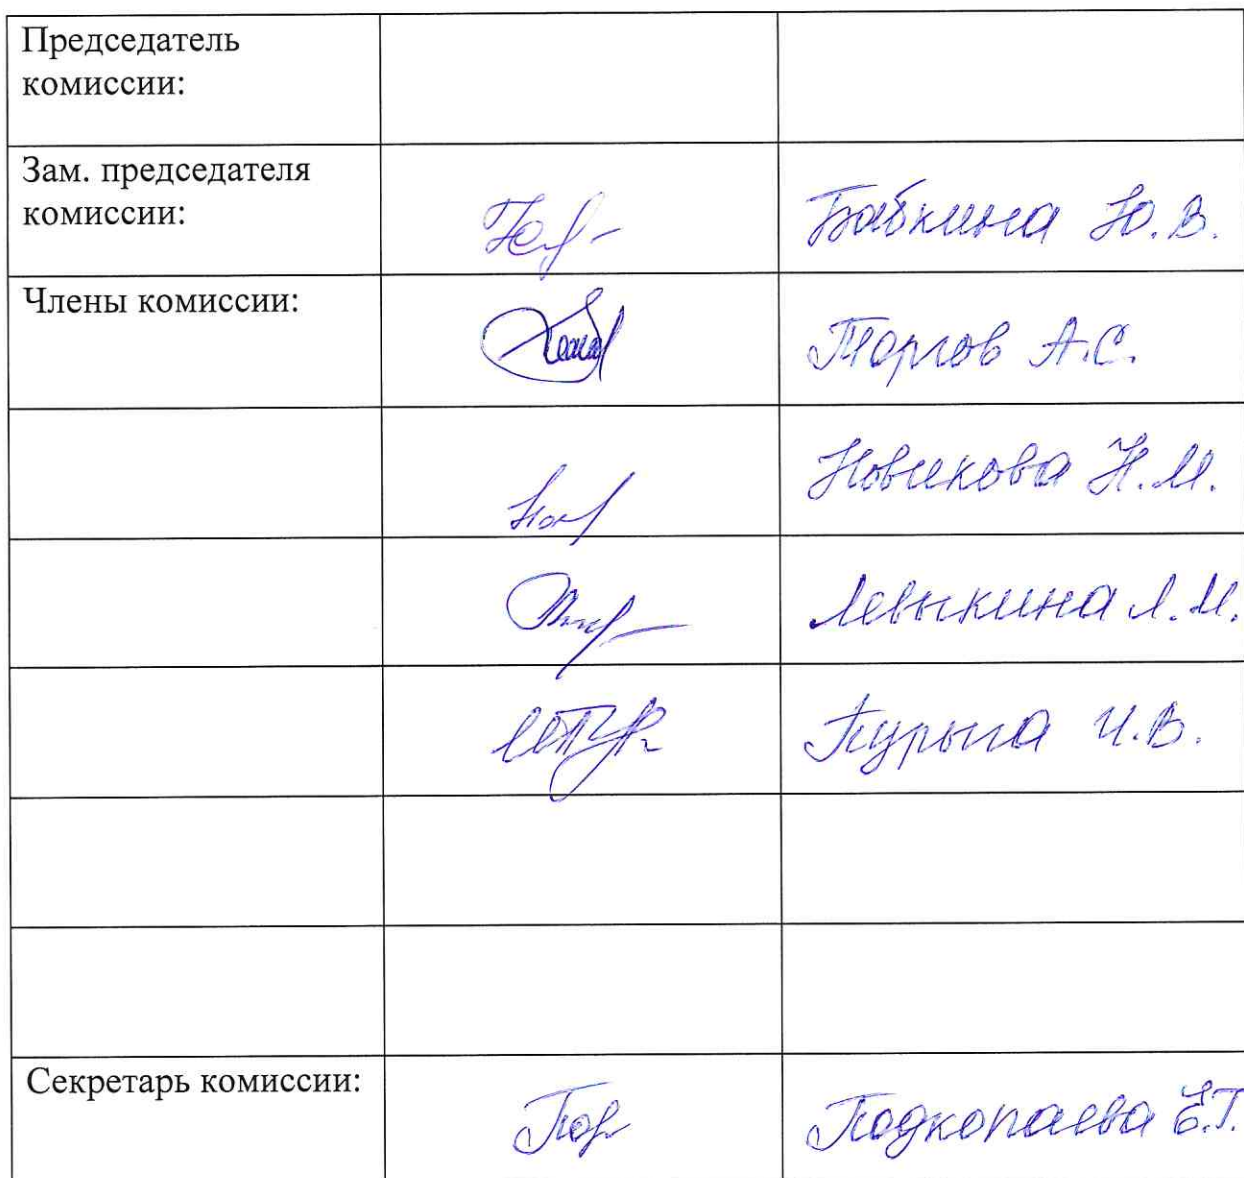 Председатель
комиссии:
Зам. председателя
комиссии:
Бабкина Ю.В.
Члены комиссии:
Торгов А.С.
Новикова Н.М.
Левыкина Л.М.
Пурыга И.В.
Секретарь комиссии:
Подкопаева Е.Г.